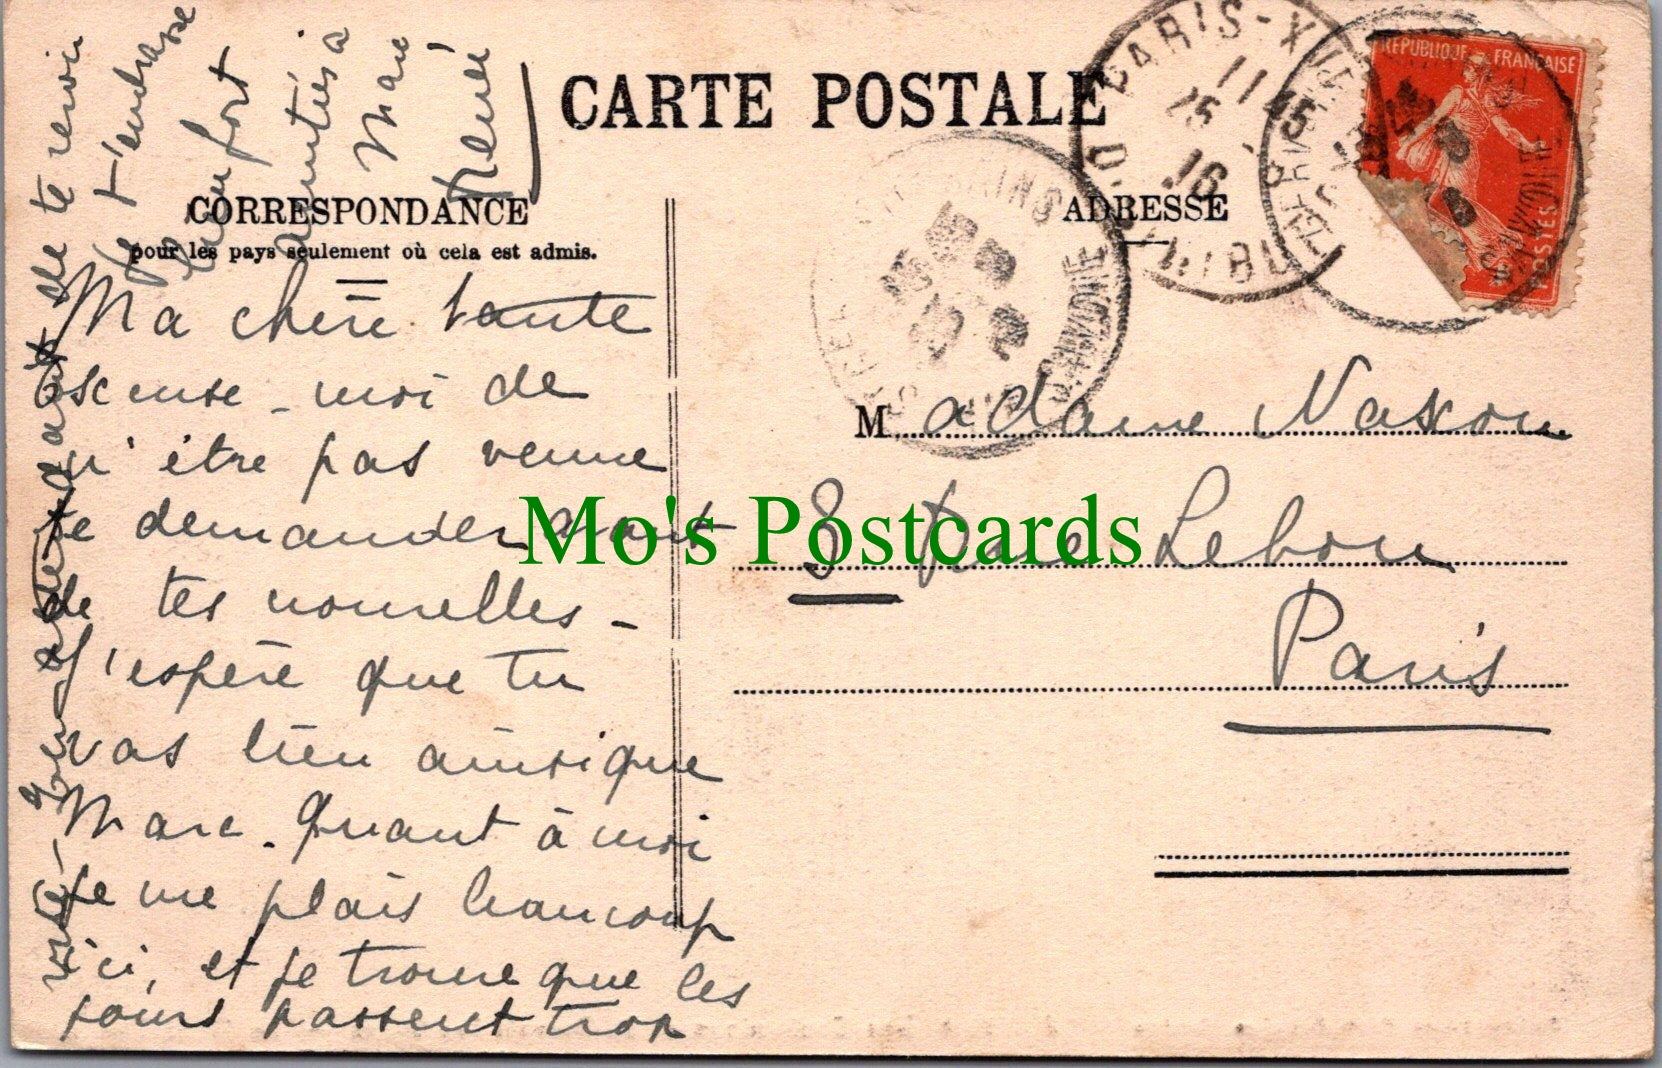 CARTE POSTALE
CORRESPONDANCE
pour les pays seulement où cela est admis.
ADRESSE
Ma chère tante
excuse-moi de
n'être pas venue
te demander avant
de tes nouvelles -
J'espère que tu
vas bien ainsi que
Marc. Quant à moi
je me plais beaucoup
ici, et je trouve que les
jours passent trop
vite -
de te revoir
Je t'embrasse
bien fort
amitiés à
Marc
Renée
Madame Naxon
8 Rue Lebon
Paris
REPUBLIQUE FRANÇAISE
POSTES
PARIS-XI
11 45
25
16
DISTRIBUTION
Mo's Postcards